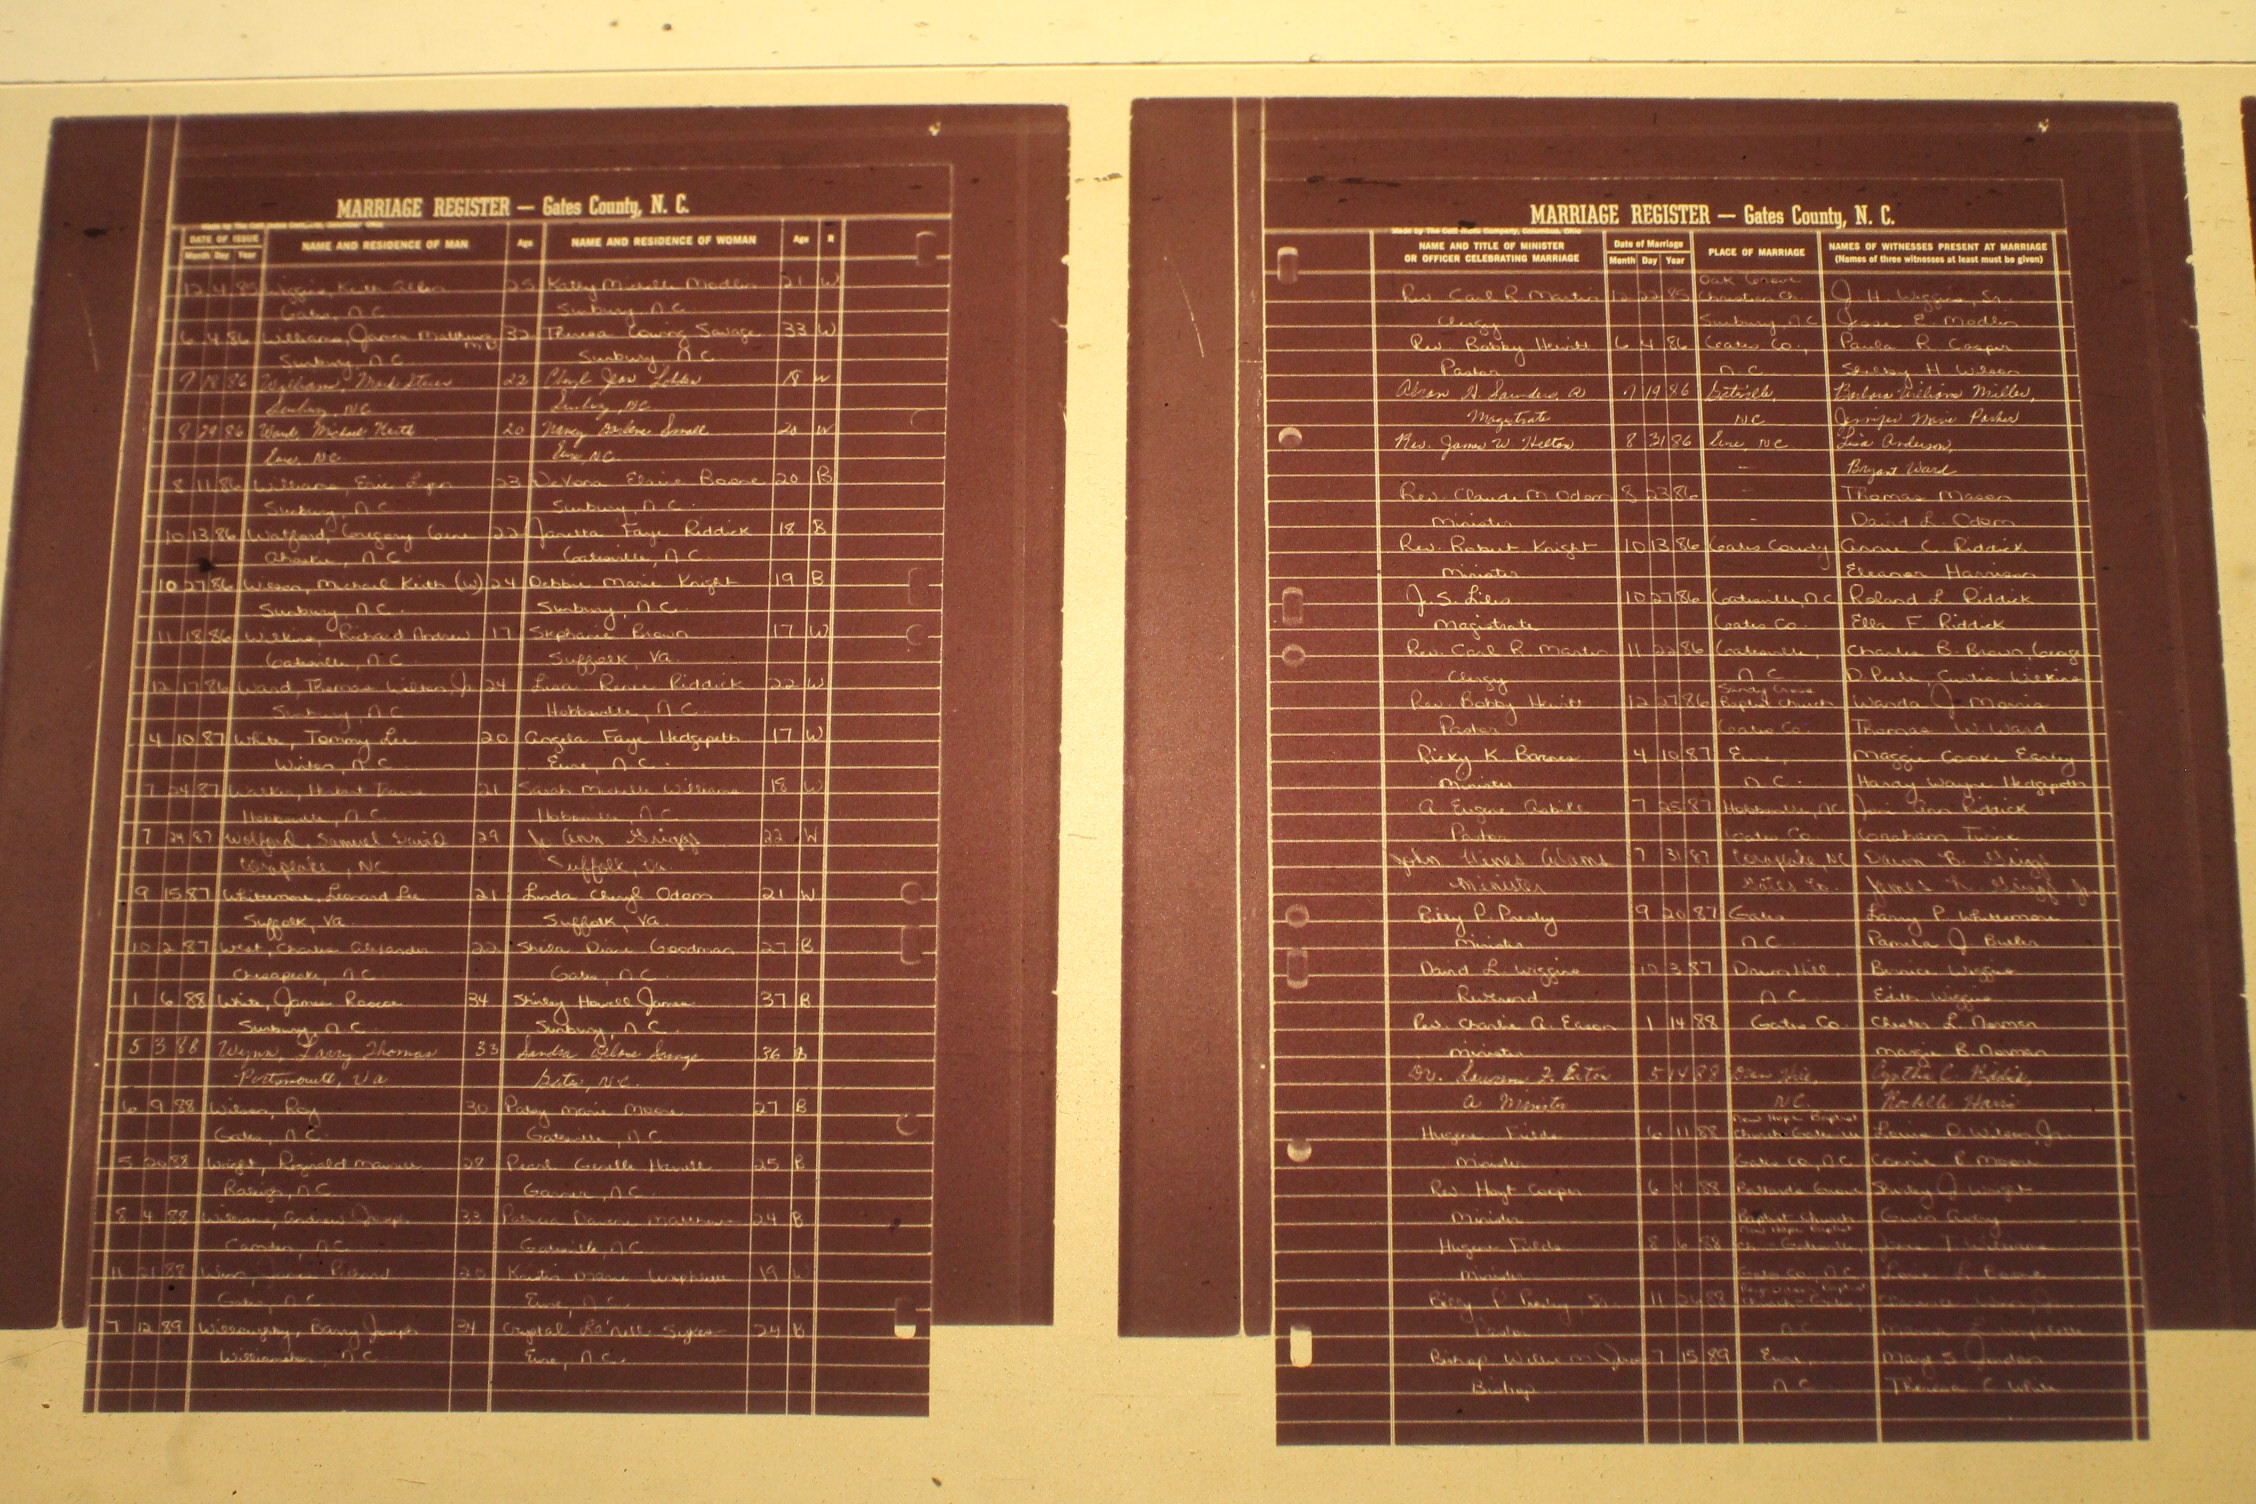 MARRIAGE REGISTER — Gates County, N. C.
DATE OF ISSUE
Month Day Year
NAME AND RESIDENCE OF MAN
Age
NAME AND RESIDENCE OF WOMAN
Age
R
12 4 85 Wiggins, Keith Allen 25 Kathy Michelle Modlin 21 W
Gates, N.C. Sunbury N.C.
6 4 86 Williams, James Matthews 32 Theresa Savage 33 W
Sunbury N.C. Sunbury N.C.
7 18 86 Williams, Mark 22 Cheryl Jean 18 W
Sunbury, NC Sunbury, NC
8 29 86 Ward, Michael Keith 20 Nancy Darlene Small 20 W
Eure, NC Eure, NC.
8 11 86 Williams, Eric Lynn 23 DeVona Elaine Boone 20 B
Sunbury, N.C. Sunbury, N.C.
10 13 86 Watford, Gregory Gene 22 Janetta Faye Riddick 18 B
Ahoskie, N.C. Gatesville, N.C.
10 27 86 Wilson, Michael Keith (W) 24 Debbie Marie Knight 19 B
Sunbury N.C. Sunbury, N.C.
11 18 86 Wilkins, Richard Andrew 17 Stephanie Brown 17 W
Gatesville, N.C. Suffolk, Va.
12 17 86 Ward, Thomas Wilton Jr. 24 Lisa Renee Riddick 22 W
Sunbury, N.C. Hobbsville, N.C.
4 10 87 White, Tommy Lee 20 Angela Faye Hedgepeth 17 W
Winton, N.C. Eure, N.C.
7 24 87 Walker, Herbert 21 Sarah Michelle Williams 18 W
Hobbsville, N.C. Hobbsville, N.C.
7 29 87 Wolford, Samuel David 29 Jo Ann Griggs 22 W
Corapeake, NC Suffolk, Va.
9 15 87 Whittemore, Leonard Lee 21 Linda Cheryl Odom 21 W
Suffolk, Va. Suffolk, Va.
10 2 87 West, Charles Alexander 22 Sheila Diane Goodman 27 B
Chesapeake, N.C. Gates, N.C.
1 6 88 White, James Roscoe 34 Shirley Howell James 37 B
Sunbury, N.C. Sunbury, N.C.
5 3 88 Wynn, Larry Thomas 33 Sandra 36 B
Portsmouth, Va Gates, N.C.
6 9 88 Wilson, Roy 30 Patsy Marie Moore 27 B
Gates, N.C. Gatesville, N.C.
5 20 88 Wright, Reginald 28 Pearl 25 B
Raleigh, N.C. Garner, N.C.
8 4 88 Williams, Andrew Joseph 33 Patricia Matthews 24 B
Camden, N.C. Gatesville, N.C.
11 21 88 20 Kristin Marie 19 W
Gates, N.C. Eure, N.C.
7 12 89 Willoughby, Barry Joseph 34 Crystal La'Nelle Sykes 24 B
Williamston, N.C. Eure, N.C.
MARRIAGE REGISTER — Gates County, N. C.
NAME AND TITLE OF MINISTER
OR OFFICER CELEBRATING MARRIAGE
Date of Marriage
Month Day Year
PLACE OF MARRIAGE
NAMES OF WITNESSES PRESENT AT MARRIAGE
(Names of three witnesses at least must be given)
Oak Grove
Rev. Carl R. Martin 12 22 85 Christian Ch. J. H. Wiggins, Sr.
Clergy Sunbury, N.C. Jesse E. Modlin
Rev. Bobby Hewitt 6 4 86 Gates Co., Paula R. Casper
Pastor N.C. Shelby H. Wilson
Saunders, A 7 19 86 Gatesville, Barbara Williams Miller,
Magistrate NC Jennifer Marie Parker
Rev. James W. Helton 8 31 86 Eure, NC Lisa Anderson,
- Bryant Ward
Rev. Claude M. Odom 8 23 86 - Thomas Mason
Minister - David L. Odom
Rev. Robert Knight 10 13 86 Gates County Annie C. Riddick
Minister Eleanor Harrison
J. S. Liles 10 27 86 Gatesville, N.C. Roland L. Riddick
Magistrate Gates Co. Ella F. Riddick
Rev. Carl R. Martin 11 22 86 Gatesville, Charles B. Brown, George
Clergy N.C. D. Peele, Curtis Wilkins
Sandy Cross
Rev. Bobby Hewitt 12 27 86 Baptist Church Wanda J. Morris
Pastor Gates Co. Thomas W. Ward
Ricky K. Barnes 4 10 87 Eure, Maggie Cooke Earley
Minister N.C. Harry Wayne Hedgepeth
A. Eugene 7 25 87 Hobbsville, N.C. Ann Riddick
Pastor Gates Co. Graham Twine
John Hines Adams 7 31 87 Corapeake, NC Dawn B. Griggs
Minister Gates Co. James R. Griggs, Jr.
Billy P. Presley 9 20 87 Gates Larry P. Whittemore
Minister N.C. Pamela J. Butler
David L. Wiggins 10 3 87 Drum Hill, Bernice Wiggins
Reverend N.C. Edith Wiggins
Rev. Charlie A. Eason 1 14 88 Gates Co. Chester L. Norman
Minister Margie B. Norman
Dr. 5 14 88 Drum Hill, Cynthia C. Riddick,
A Minister N.C. Rochelle Harris
New Hope Baptist
Hugene Fields 6 11 88 Church Louise D. Wilson, Jr.
Minister Gates Co., N.C. Connie P. Moore
Rev. Hoyt Cooper 6 4 88 Ballards Grove Shirley J. Wright
Minister Baptist Church Gwen
New Hope Baptist
Hugene Fields 8 6 88 Gatesville,
Minister Gates Co., N.C.
Billy P. Presley, Sr. 11 26 88
Pastor N.C.
Bishop Willie M. 7 15 89 Eure, Mary S. Jordan
Bishop N.C. Theresa C. White